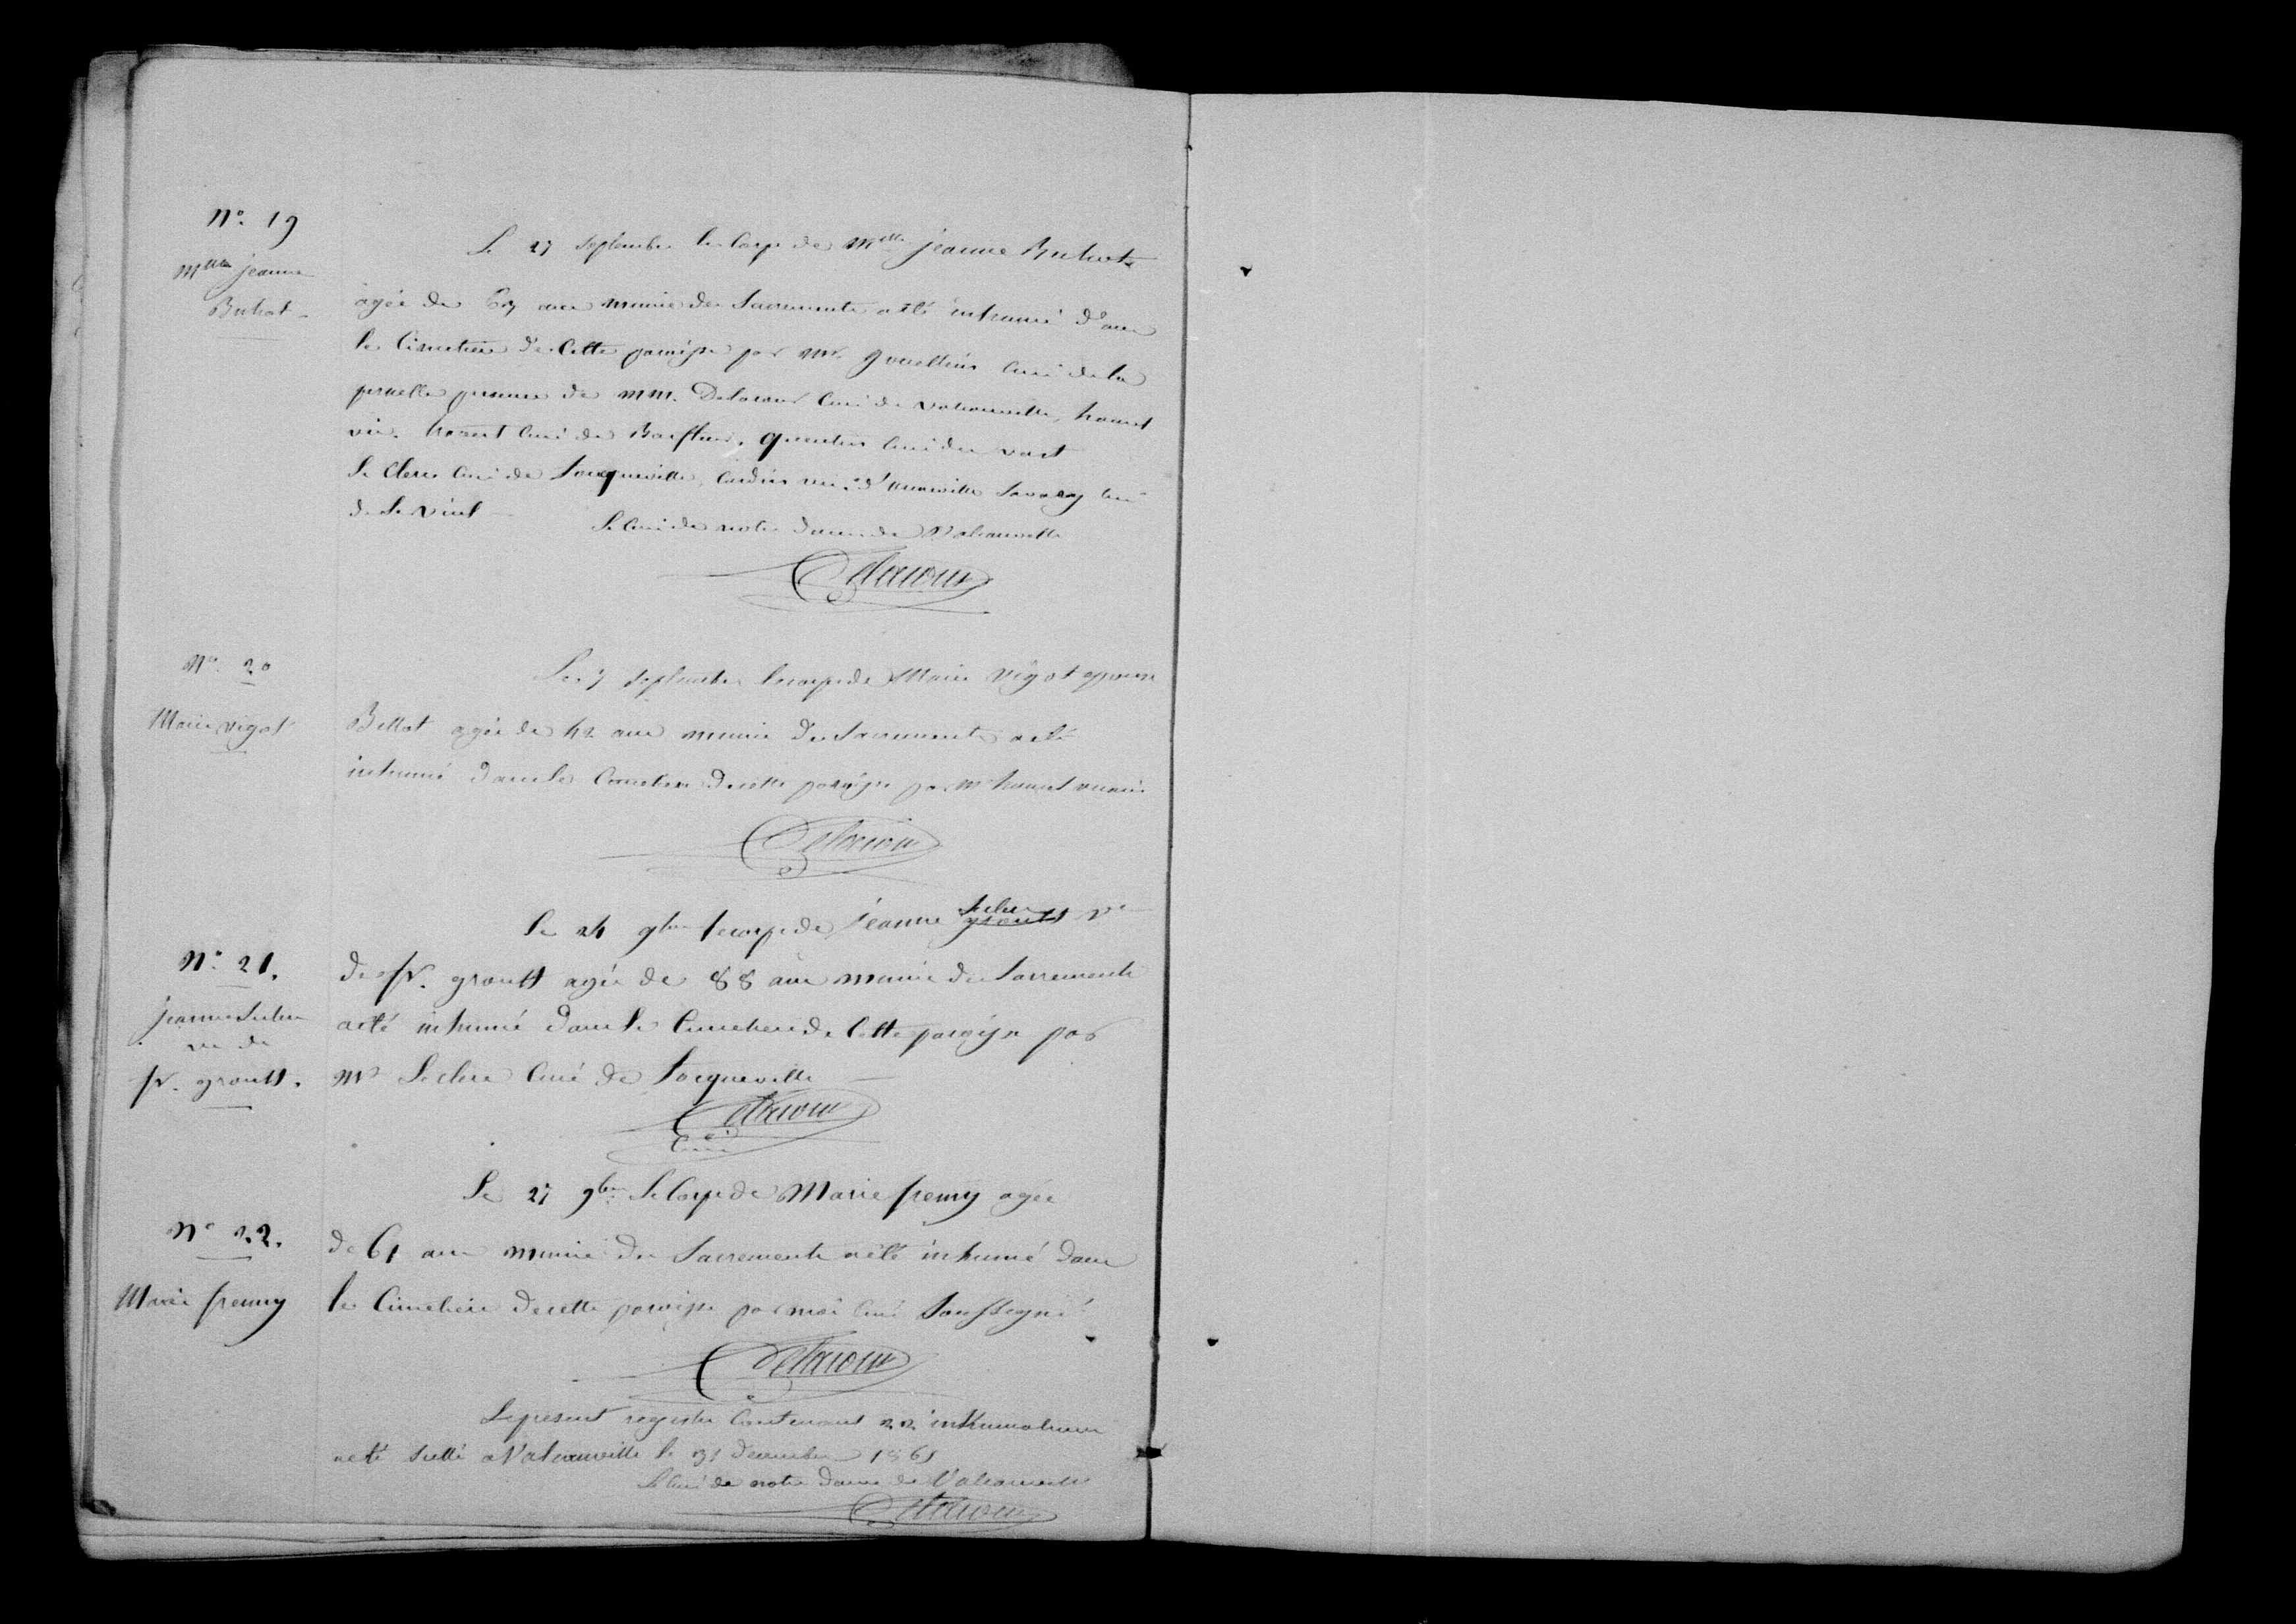 N° 19
Mlle jeanne
Buhot
Le 27 septembre le corps de Melle jeanne Buhot
agée de 67 ans munie des Sacrements a été inhumé dans
le Cimetière de Cette paroisse par mr. gouellain Curé de la
pernelle presence de MM. Delacour Curé de valcanville, houet
vic. Curé de Barfleur, quentin Curé du vast
Le Clerc Curé de Tocqueville, Cardin vic. d'anneville Savary Curé
de Le Vicel
Le Curé de notre dame de Valcanville
Delacour
N° 20
Marie vigot
Le 7 septembre le corps de Marie vigot epouse
Bellot agée de 42 ans munie des Sacrements a été
inhumé dans le Cimetiere de cette paroisse par mr houet vicaire
Delacour
N° 21.
jeanne Leclerc
ve de
fr. groult.
Le 24 9bre le corps de jeanne Leclerc groult ve
de fr. groult agée de 88 ans munie des Sacrements
a été inhumé dans le Cimetiere de Cette paroisse par
Mr Leclerc Curé de Tocqueville
Delacour
Curé
N° 22.
Marie fremy
Le 27 9bre Le Corps de Marie fremy agée
de 61 ans munie des Sacrements a été inhumé dans
le Cimetiere de cette paroisse par moi Curé Soussigné
Delacour
Le present registre Contenant 22 inhumations
a été a Valcanville le 31 decembre 1861
Le Curé de notre Dame de Valcanville
Delacour